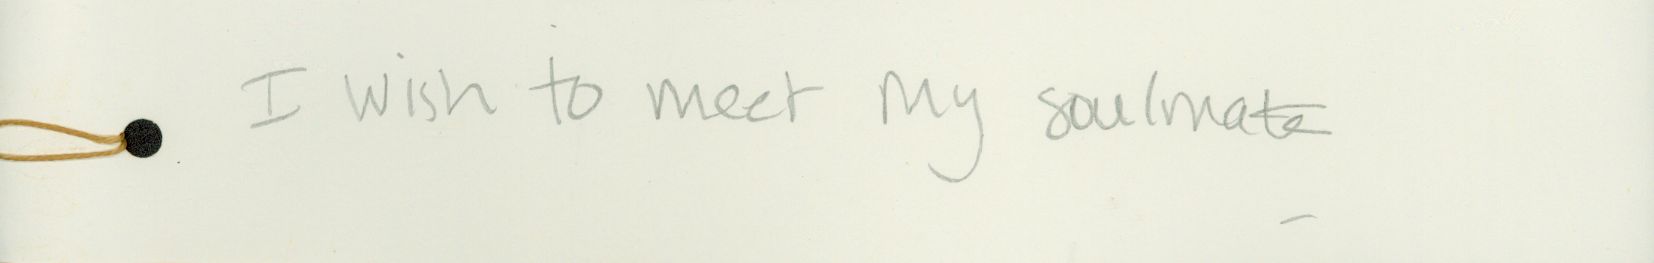 I wish to meet my soulmate